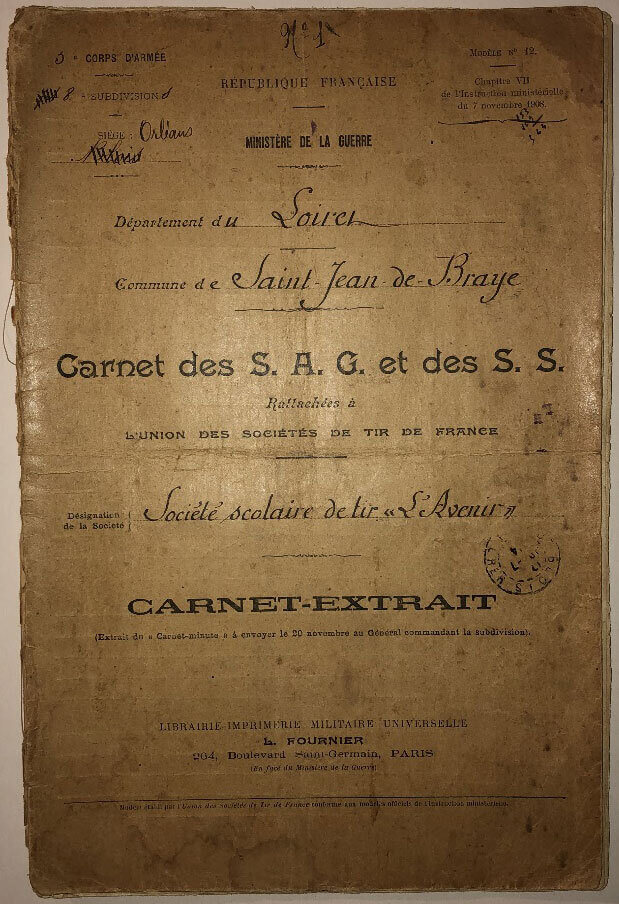 Nº 1
5 e CORPS D'ARMÉE
8 e SUBDIVISION
SIÈGE : Orléans
RÉPUBLIQUE FRANÇAISE
MINISTÈRE DE LA GUERRE
MODÈLE Nº 12.
Chapitre VII
de l'Instruction ministérielle
du 7 novembre 1908.
Département du Loiret
Commune de Saint-Jean-de-Braye
Carnet des S. A. G. et des S. S.
Rattachées à
L'UNION DES SOCIÉTÉS DE TIR DE FRANCE
Désignation
de la Société
Société scolaire de tir « L'Avenir »
CARNET-EXTRAIT
(Extrait du « Carnet-minute » à envoyer le 20 novembre au Général commandant la subdivision).
LIBRAIRIE-IMPRIMERIE MILITAIRE UNIVERSELLE
L. FOURNIER
264, Boulevard Saint-Germain, PARIS
(En face du Ministère de la Guerre)
Modèle établi par l'Union des Sociétés de Tir de France conforme aux modèles officiels de l'Instruction ministérielle.